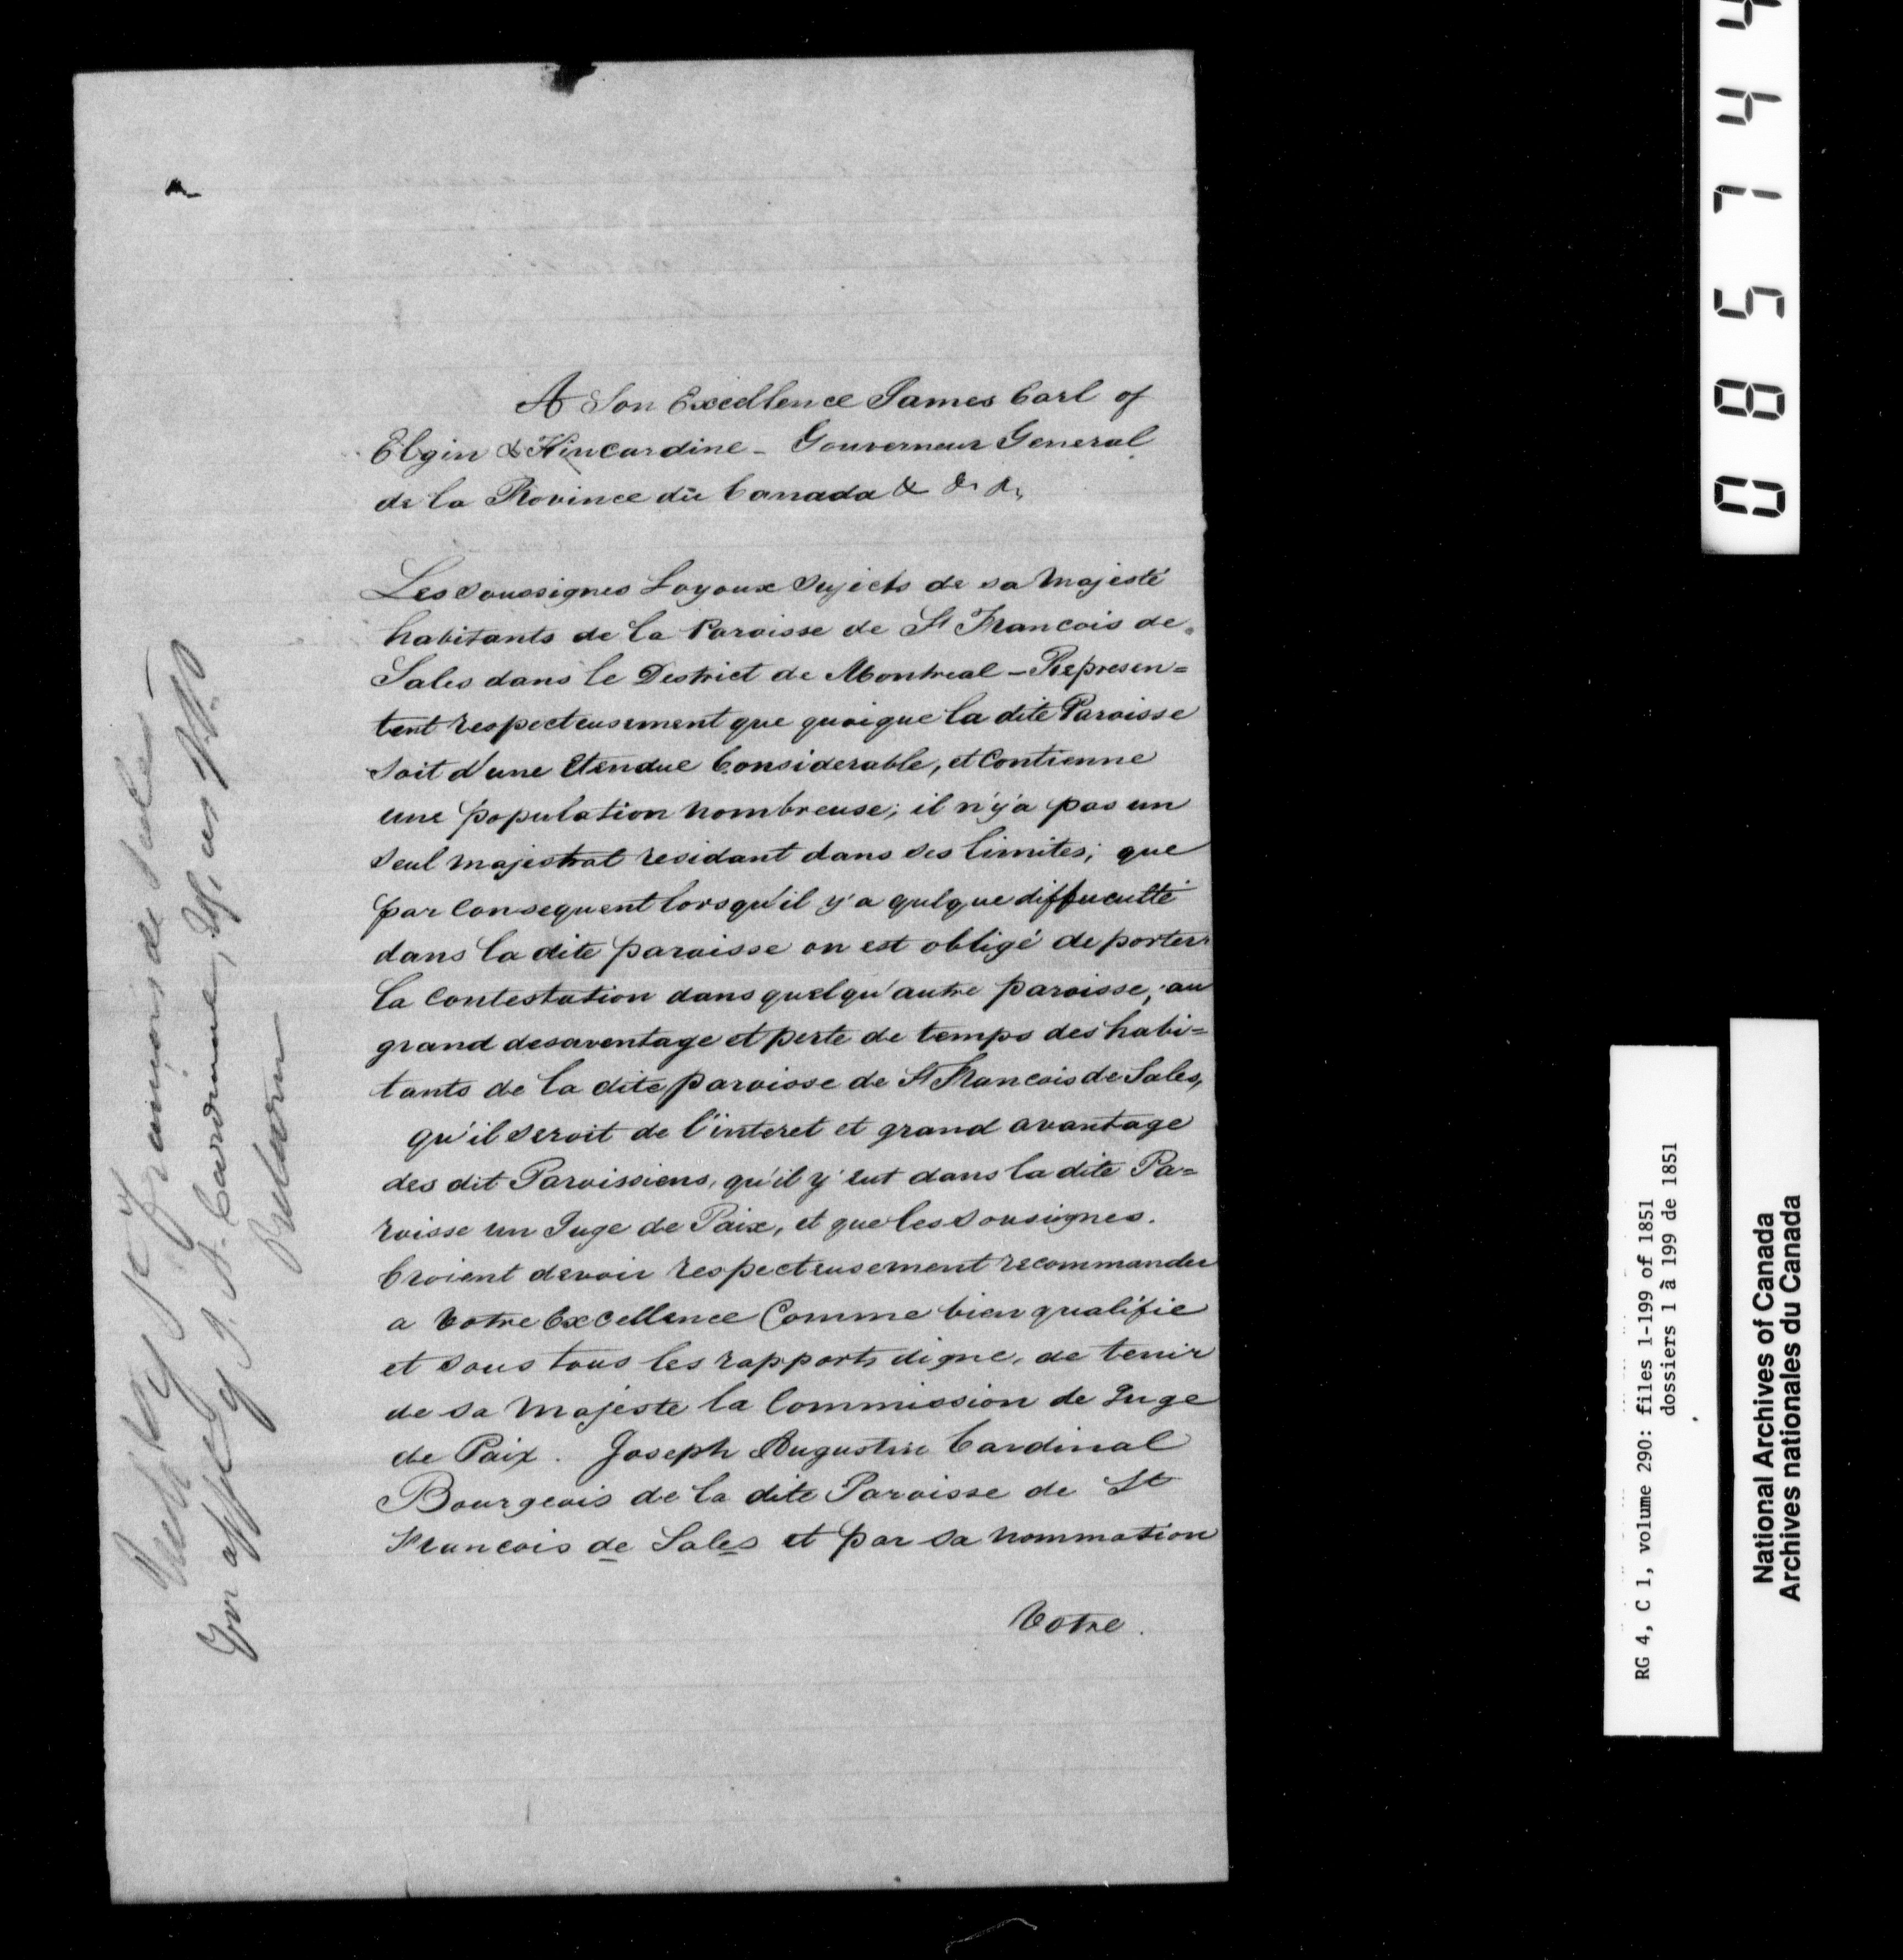 A Son Excellence James Earl of
Elgin & Kincardine - Gouverneur General
de la Province du Canada & & &
Les soussignes Loyoux Sujects de sa Majesté
habitants de la Paroisse de St Francois de
Sales dans le District de Montreal - Represen=
tent respecteusement que quoique la dite Paroisse
soit d'une Etendue Considerable, et Contienne
une population nombreuse; il n'y'a pas un
seul majestrat residant dans ses limites; que
par consequent lorsqu'il y'a qulque diffucultté
dans la dite paroisse on est obligé de porter
la Contestation dans quelqu'autre paroisse, au
grand desaventage et perte de temps des habi=
tants de la dite paroisse de St Francois de Sales,
qu'il seroit de l'interet et grand avantage
des dit Paroissiens, qu'il y'eut dans la dite Pa=
roisse un Juge de Paix, et que les sousignes.
Croient devoir respecteusement recommander
a Votre Excellence Comme bien qualifie
et sous tous les rapports digne, de tenir
de sa Majeste la Commission de Juge
de Paix. Joseph Augustin Cardinal
Bourgeois de la dite Paroisse de St
Francois de Sales et par sa nommation
Votre.
St François de Sales -
for app of J. A. Cardinal, as J.P.
085744
RG 4, C 1, volume 290: files 1-199 of 1851
dossiers 1 à 199 de 1851
National Archives of Canada
Archives nationales du Canada